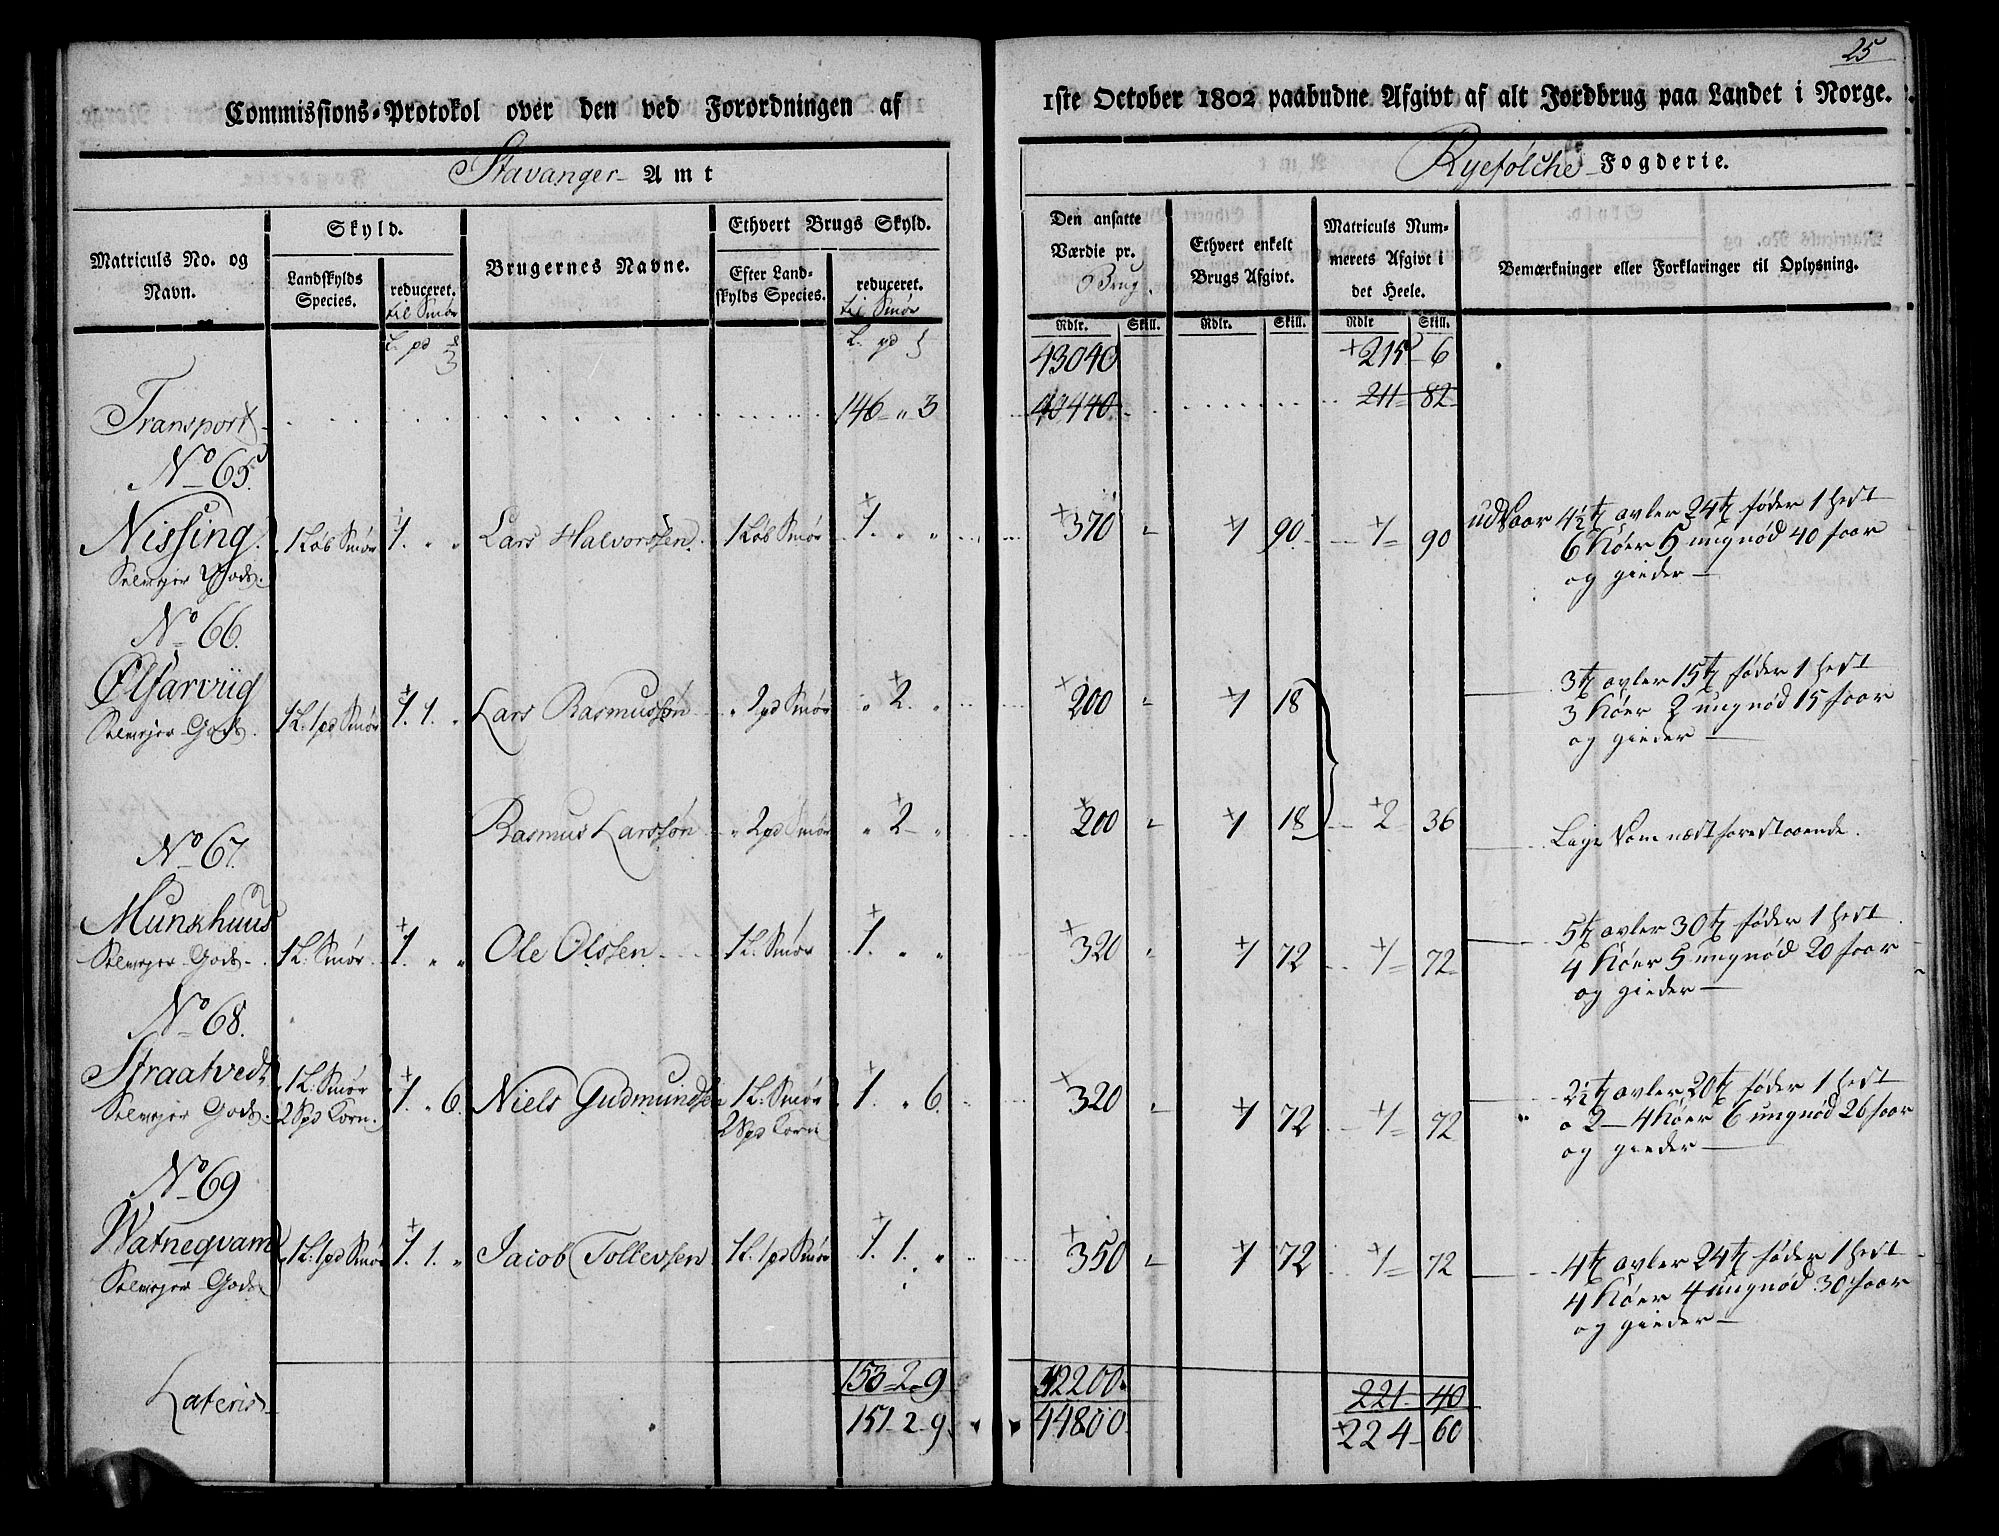 25
Commissions-Protokol over den ved Forordningen af 1ste October 1802 paabudne Afgivt af alt Jordbrug paa Landet i Norge.
Stavanger Amt
Ryefølche Fogderie.
Matriculs No. og Navn.
Skyld.
Landskylds Species.
reduceret. til Smør
Brugernes Navne.
Ethvert Brugs Skyld.
Efter Landskylds Species.
reduceret. til Smør
Den ansatte Værdie pr. Brug.
Ethvert enkelt Brugs Afgivt.
Matriculs Nummerets Afgivt i det Heele.
Bemærkninger eller Forklaringer til Oplysning.
Rdlr. Skill. Rdlr. Skill. Rdlr Skill.
L. pd
L. pd
43040 +215 6
Transport 146 " 3 211 82
No 65.
Nissing 1 Løb Smør 1. " " Lars Halvorssen 1 Løb Smør 1. " " 370 " 1 90 1 90 udsaar 4½ t avler 24 t føder 1 hest
6 Køer 5 ungnød 40 faar
og gieder
Selvejer Gods.
No 66.
Ølfarviig 1 L. 1 pd Smør 1. 1. " Lars Rasmussøn " 2 pd Smør " 2. " 200 " 1 18 3 t avler 15 t føder 1 hest
3 Køer 2 ungnød 15 faar
og gieder
Selvejer Gods.
Rasmus Larssøn " 2 pd Smør " 2 " 200 " 1 18 2 36 Lige som næstforestaaende.
No 67.
Munkhuus 1 L. Smør 1. " " Ole Olssen 1 L. Smør 1. " " 320 " 1 72 1 72 5 t avler 30 t føder 1 hest
4 Køer 5 ungnød 20 faar
og gieder
Selvejer Gods
No 68.
Straatvedt 1 L. Smør 1. " 6. Niels Gudmundsen 1 L. Smør 1. " 6. 320 " 1 72 1 72 2½ t avler 20 t føder 1 hest
Selvejer Gods. 2 Spd Korn. 2 Spd Korn a 2 — 4 Køer 6 ungnød 26 faar
og gieder
No 69
Watneqvam 1 L. 1 pd Smør 1. 1. " Jacob Tollevsen 1 L. 1 pd Smør 1. 1. " 350 " 1 72 1 72 4 t avler 24 t føder 1 hest
Selvejer Gods 4 Køer 4 ungnød 30 faar
og gieder
Lateris 153 2 9 42200 221 40
151 2 9 44800 224 60